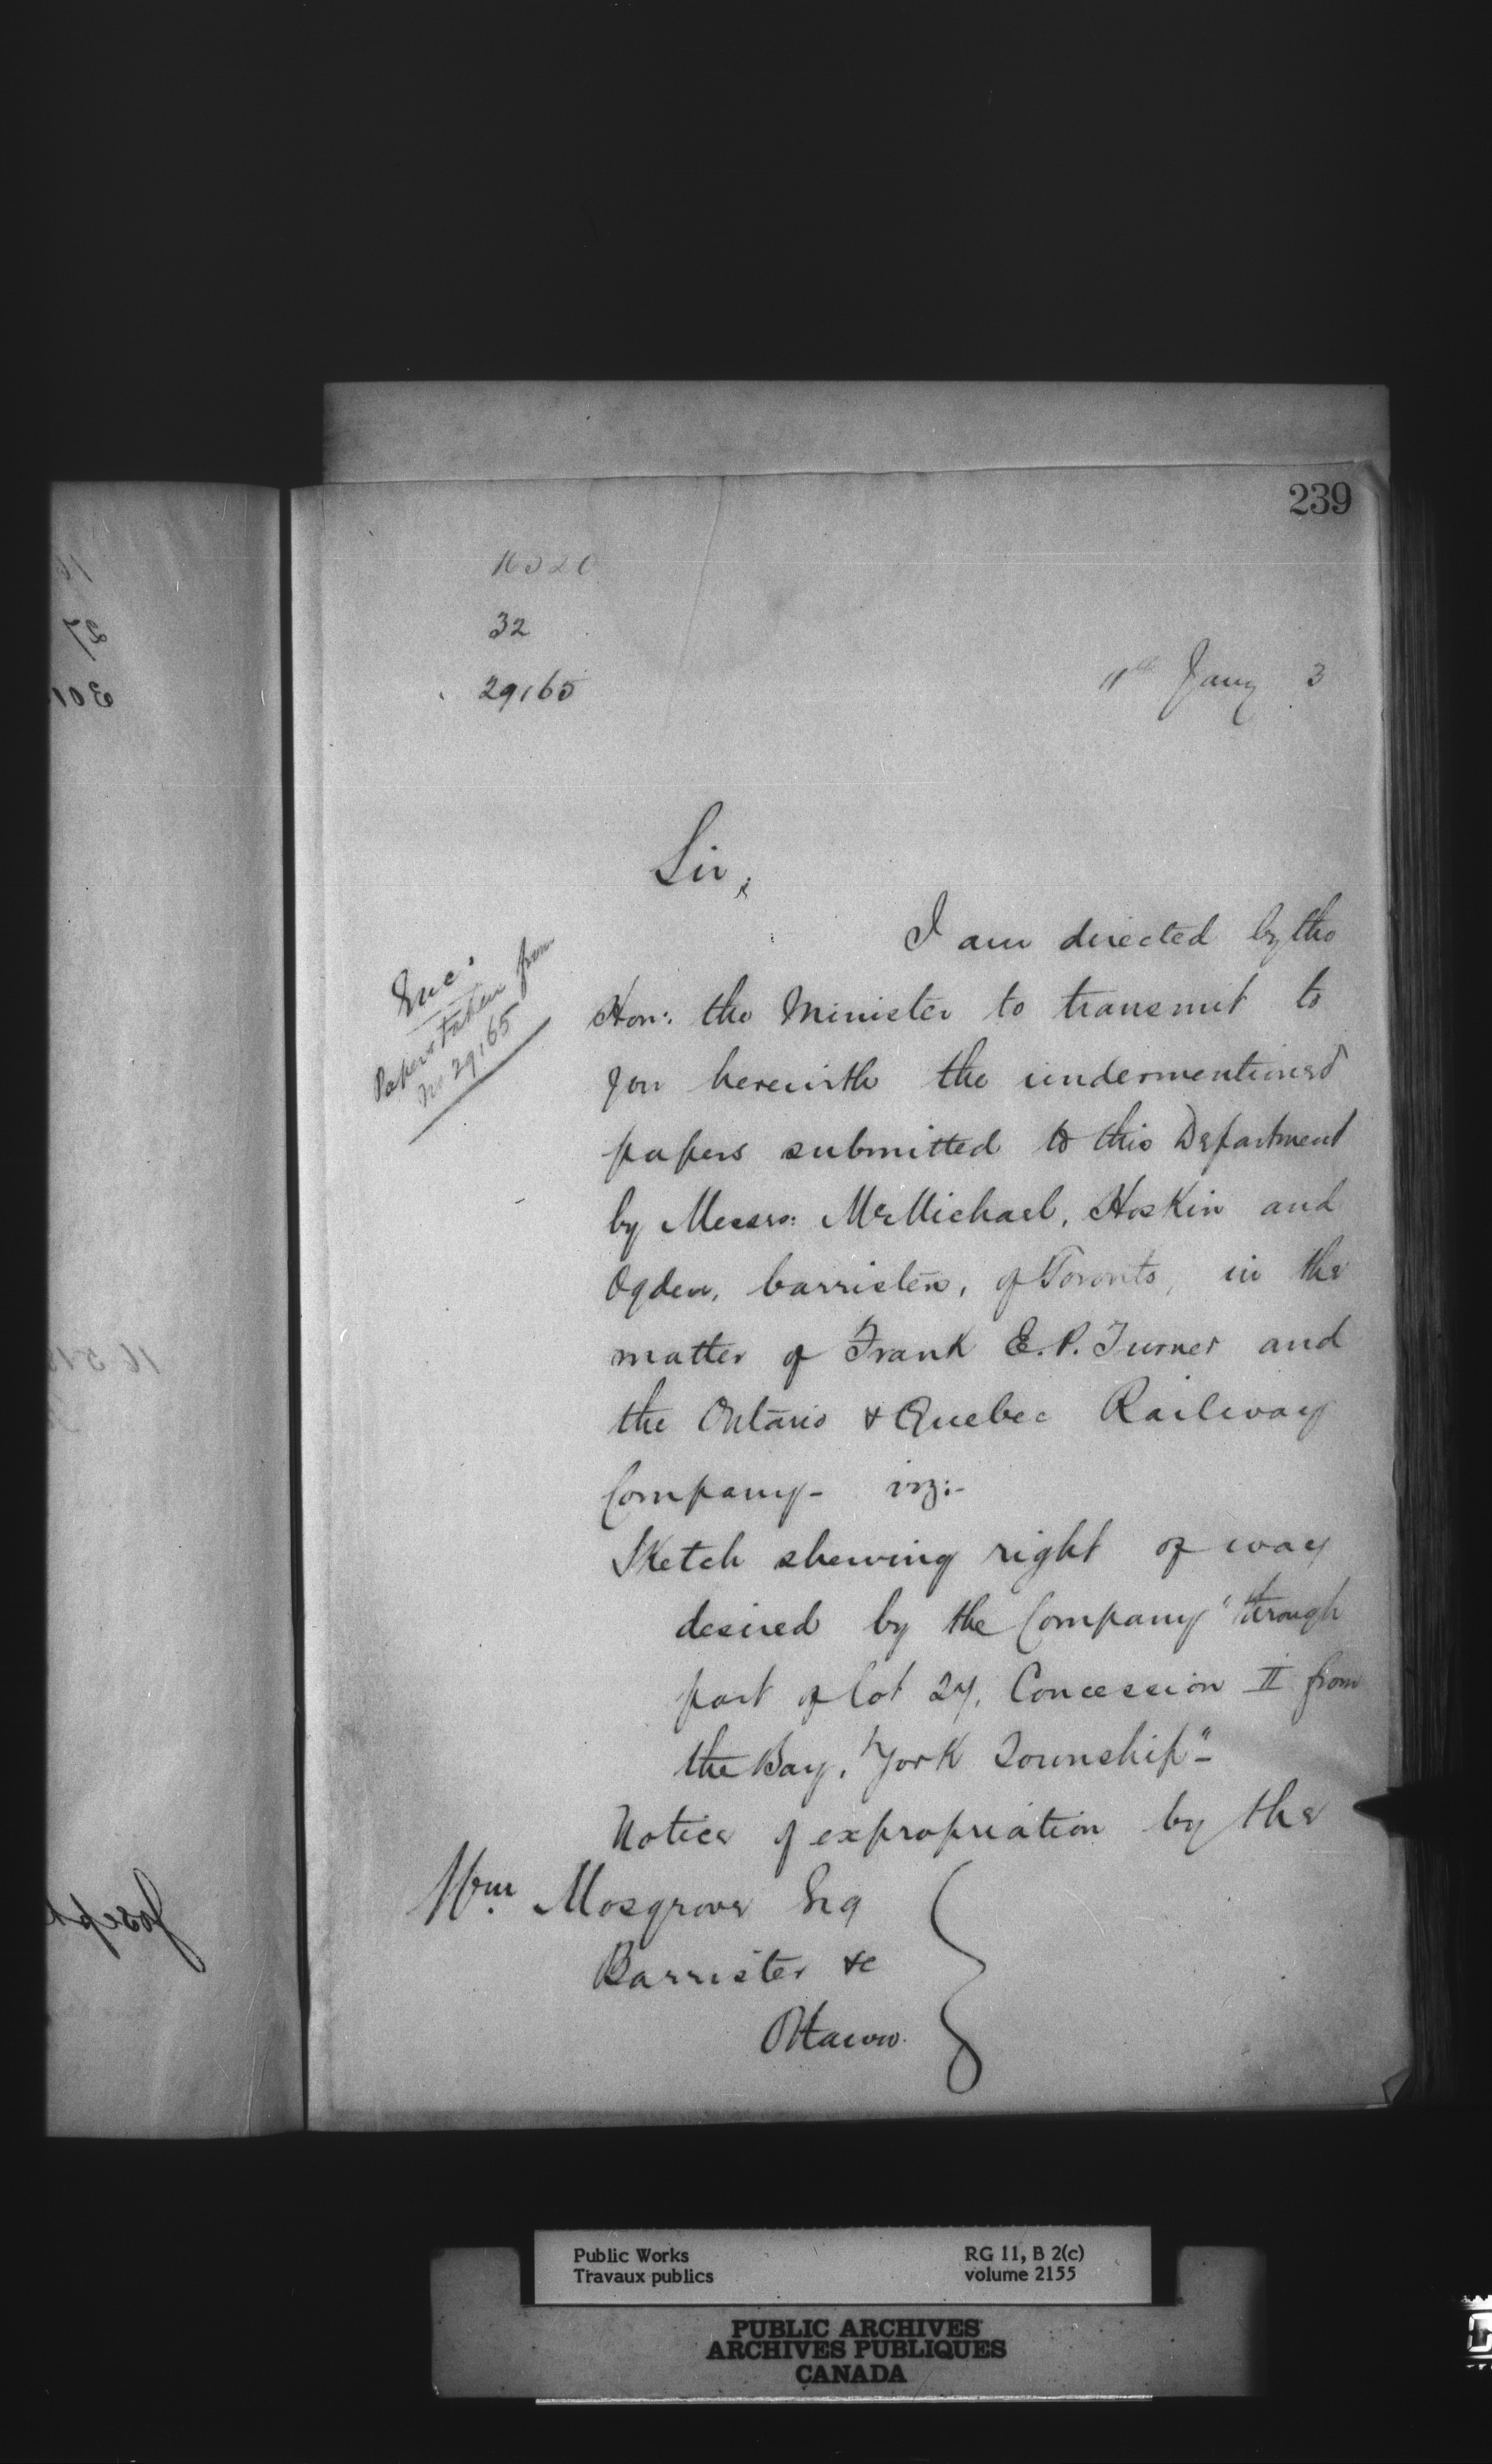 239
16520
32
29165
11th Jany 3
Sir,
Inc.
Papers taken from
No 29165
I am directed by the
Hon: the Minister to transmit to
you herewith the undermentioned
papers submitted to this Department
by Messrs: McMichael, Hoskin and
Ogden, barristers, of Toronto, in the
matter of Frank E. P. Turner and
the Ontario & Quebec Railway
Company - viz:-
Sketch shewing right of way
desired by the Company "through
part of lot 27, Concession II from
the Bay, York Township" -
Notice of expropriation by the
Wm. Mosgrove Esq
Barrister &c
Ottawa.
Public Works
Travaux publics
RG 11, B 2(c)
volume 2155
PUBLIC ARCHIVES
ARCHIVES PUBLIQUES
CANADA